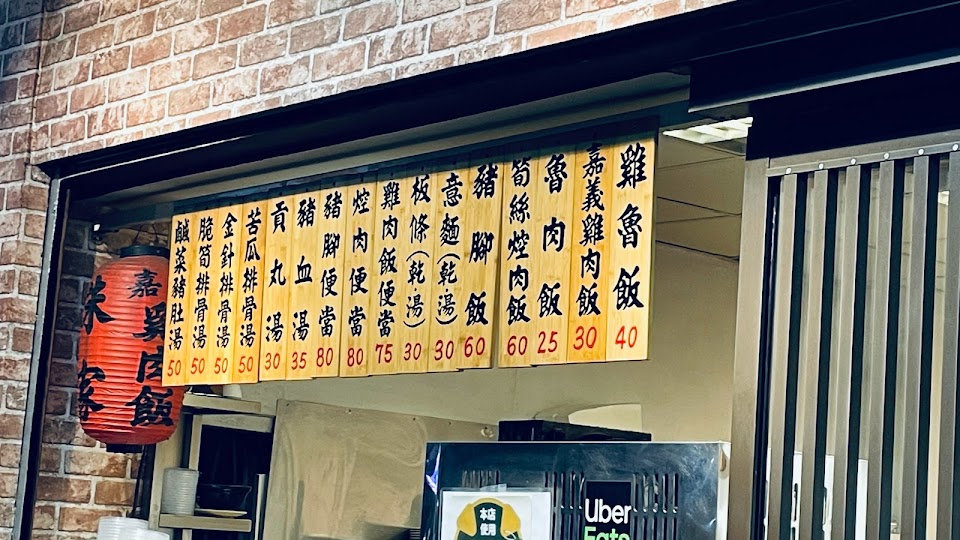 雞魯飯 40
嘉義雞肉飯 30
魯肉飯 25
筍絲焢肉飯 60
豬腳飯 60
意麵(乾·湯) 30
板條(乾·湯) 30
雞肉飯便當 75
焢肉便當 80
豬腳便當 80
豬血湯 35
貢丸湯 30
苦瓜排骨湯 50
金針排骨湯 50
脆筍排骨湯 50
鹹菜豬肚湯 50
嘉
肉飯
家
本店
使用
Uber
Eats